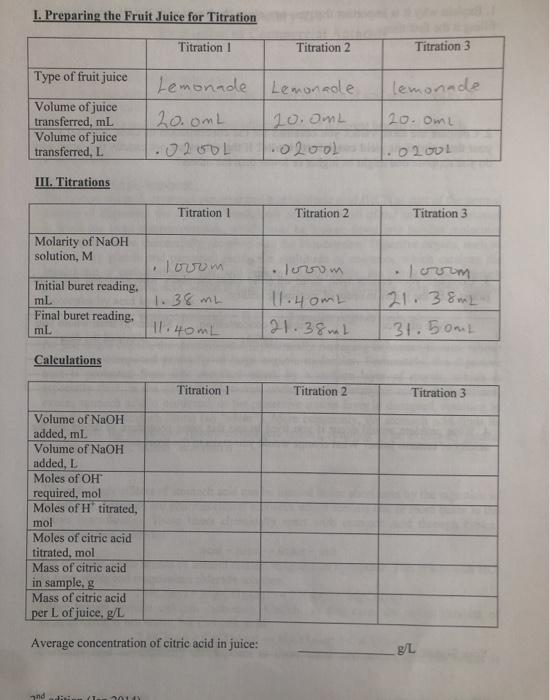 I. Preparing the Fruit Juice for Titration
Titration 1 Titration 2 Titration 3
Type of fruit juice Lemonade Lemonade lemonade
Volume of juice
transferred, mL 20.0mL 20.0mL 20.0mL
Volume of juice
transferred, L .0200L .0200L .0200L
III. Titrations
Titration 1 Titration 2 Titration 3
Molarity of NaOH
solution, M .1000m .1000m .1000m
Initial buret reading,
mL 1.38 mL 11.40mL 21.38mL
Final buret reading,
mL 11.40mL 21.38mL 31.50mL
Calculations
Titration 1 Titration 2 Titration 3
Volume of NaOH
added, mL
Volume of NaOH
added, L
Moles of OH⁻
required, mol
Moles of H⁺ titrated,
mol
Moles of citric acid
titrated, mol
Mass of citric acid
in sample, g
Mass of citric acid
per L of juice, g/L
Average concentration of citric acid in juice: g/L